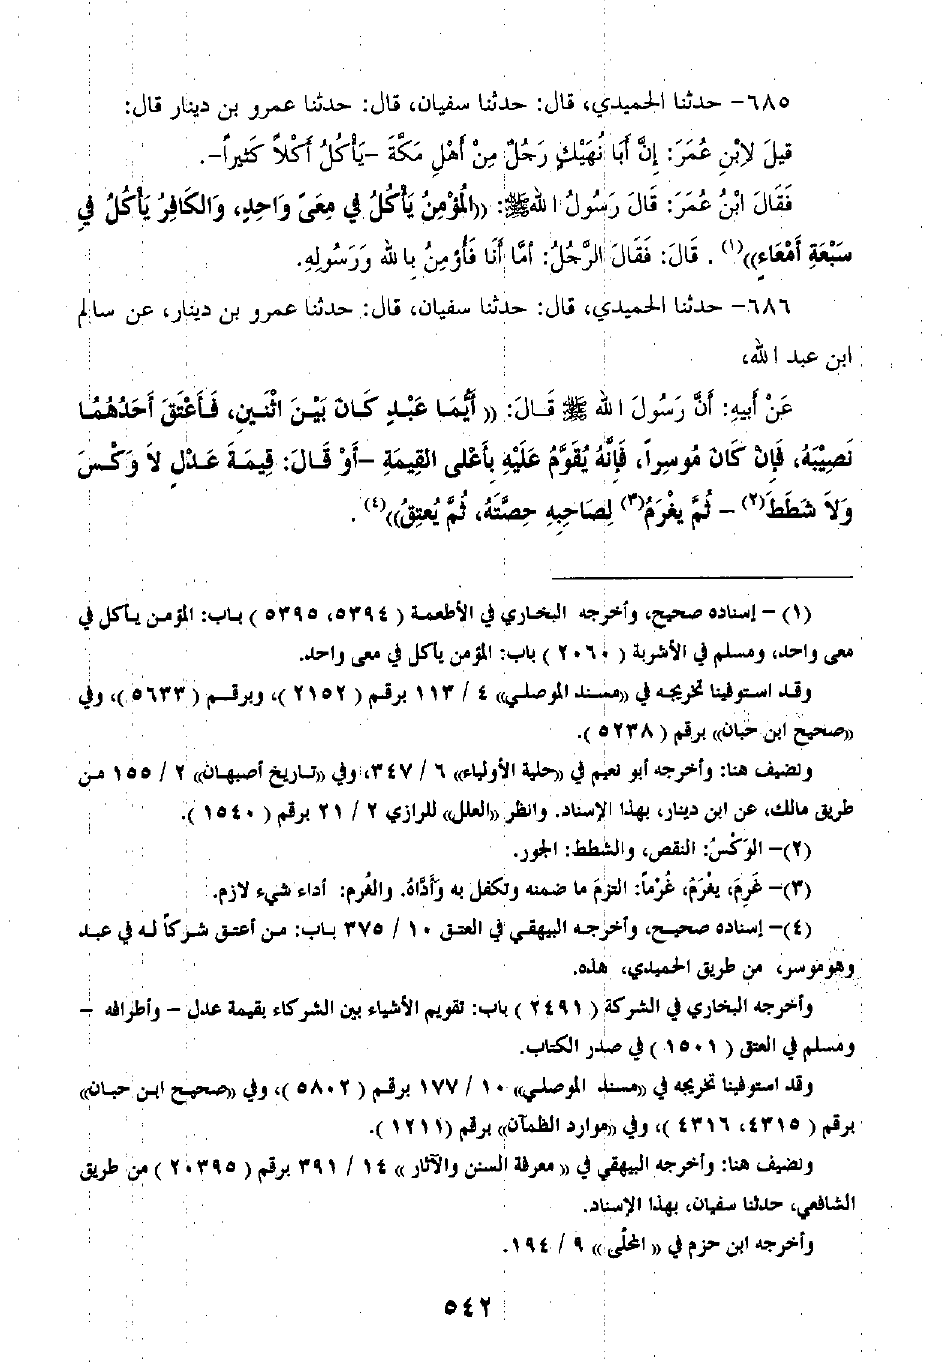 ٦٨٥- حدثنا الحميدي، قال: حدثنا سفيان، قال: حدثنا عمرو بن دينار قال:
قيلَ لاِبْنِ عُمَرَ: إِنَّ أَبَا نُهَيْكٍ رَجُلٌ مِنْ أَهْلِ مَكَّةَ -يَأْكُلُ أَكْلاً كَثيراً-.
فَقَالَ ابْنُ عُمَرَ: قَالَ رَسُولُ اللهﷺ: ((الْمُؤْمِنُ يَأْكُلُ فِي مِعَىً وَاحِدٍ، وَالكَافِرُ يَأْكُلُ فِي
سَبْعَةِ أَمْعَاءٍ))(١) . قَالَ: فَقَالَ الرَّجُلُ: أمَّا أَنَا فَأُوْمِنُ بِالله وَرَسُولِهِ.
٦٨٦- حدثنا الحميدي، قال: حدثنا سفيان، قال: حدثنا عمرو بن دينار، عن سالم
ابن عبد الله،
عَنْ أَبيهِ: أَنَّ رَسُولَ الله ﷺ قَالَ: (( أَيُّمَا عَبْدٍ كَانَ بَيْنَ اثْنَينِ، فَأَعْتَقَ أَحَدُهُمَا
نَصِيْبَهُ، فَإِنْ كَانَ مُوسِراً، فَإِنَّهُ يُقَوَّمُ عَلَيْهِ بِأَعْلى القِيمَةِ -أَوْ قَالَ: قِيمَةَ عَدْلٍ لاَ وَكْسَ
وَلاَ شَطَطَ(٢) - ثُمَّ يغْرَمُ(٣) لِصَاحِبِهِ حِصَّتَهُ، ثُمَّ يُعتِقُ))(٤) .
(١) - إسناده صحيح، وأخرجه البخاري في الأطعمة ( ٥٣٩٤، ٥٣٩٥ ) باب: المؤمن يأكل في
معى واحد، ومسلم في الأشربة ( ٢٠٦٠ ) باب: المؤمن يأكل في معى واحد.
وقد استوفينا تخريجه في ((مسند الموصلي)) ٤ / ١١٣ برقم ( ٢١٥٢ )، وبرقم ( ٥٦٣٣ )، وفي
((صحيح ابن حبان)) برقم ( ٥٢٣٨ ).
ونضيف هنا: وأخرجه أبو نعيم في ((حلية الأولياء)) ٦ / ٣٤٧، وفي ((تاريخ أصبهان)) ٢ / ١٥٥ من
طريق مالك، عن ابن دينار، بهذا الإسناد. وانظر ((العلل)) للرازي ٢ / ٢١ برقم ( ١٥٤٠ ).
(٢)- الوَكْسُ: النقص، والشطط: الجور.
(٣)- غَرِمَ، يغْرَمُ، غُرْماً: التزمَ ما ضمنه وتكفل به وَأَدَّاهُ. والغُرم: أداء شيء لازم.
(٤)- إسناده صحيح، وأخرجه البيهقي في العتق ١٠ / ٣٧٥ باب: من أعتق شركاً له في عبد
وهو موسر، من طريق الحميدي، هذه.
وأخرجه البخاري في الشركة ( ٢٤٩١ ) باب: تقويم الأشياء بين الشركاء بقيمة عدل - وأطرافه -
ومسلم في العتق ( ١٥٠١ ) في صدر الكتاب.
وقد استوفينا تخريجه في ((مسند الموصلي)) ١٠ / ١٧٧ برقم ( ٥٨٠٢ )، وفي ((صحيح ابن حبان))
برقم ( ٤٣١٥، ٤٣١٦ )، وفي ((موارد الظمآن)) برقم (١٢١١ ).
ونضيف هنا: وأخرجه البيهقي في (( معرفة السنن والآثار )) ١٤ / ٣٩١ برقم ( ٢٠٣٩٥ ) من طريق
الشافعي، حدثنا سفيان، بهذا الإسناد.
وأخرجه ابن حزم في (( المحلّى )) ٩ / ١٩٤.
٥٤٢